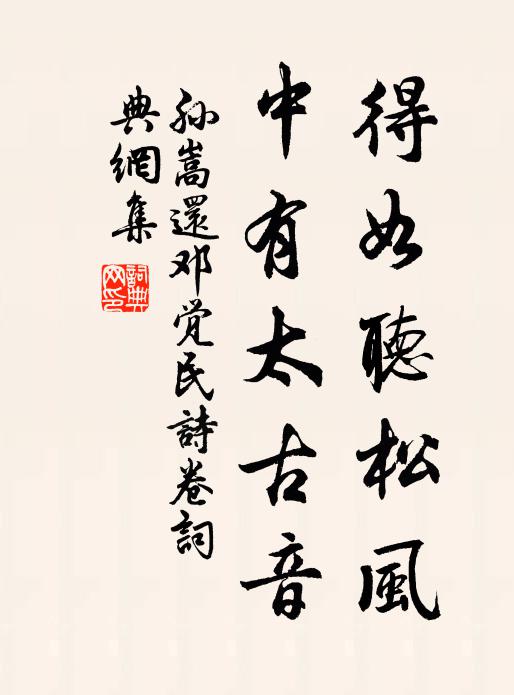 得如聽松風
中有太古音
孙嵩還邓觉民詩卷詞
典網集
詞典网印